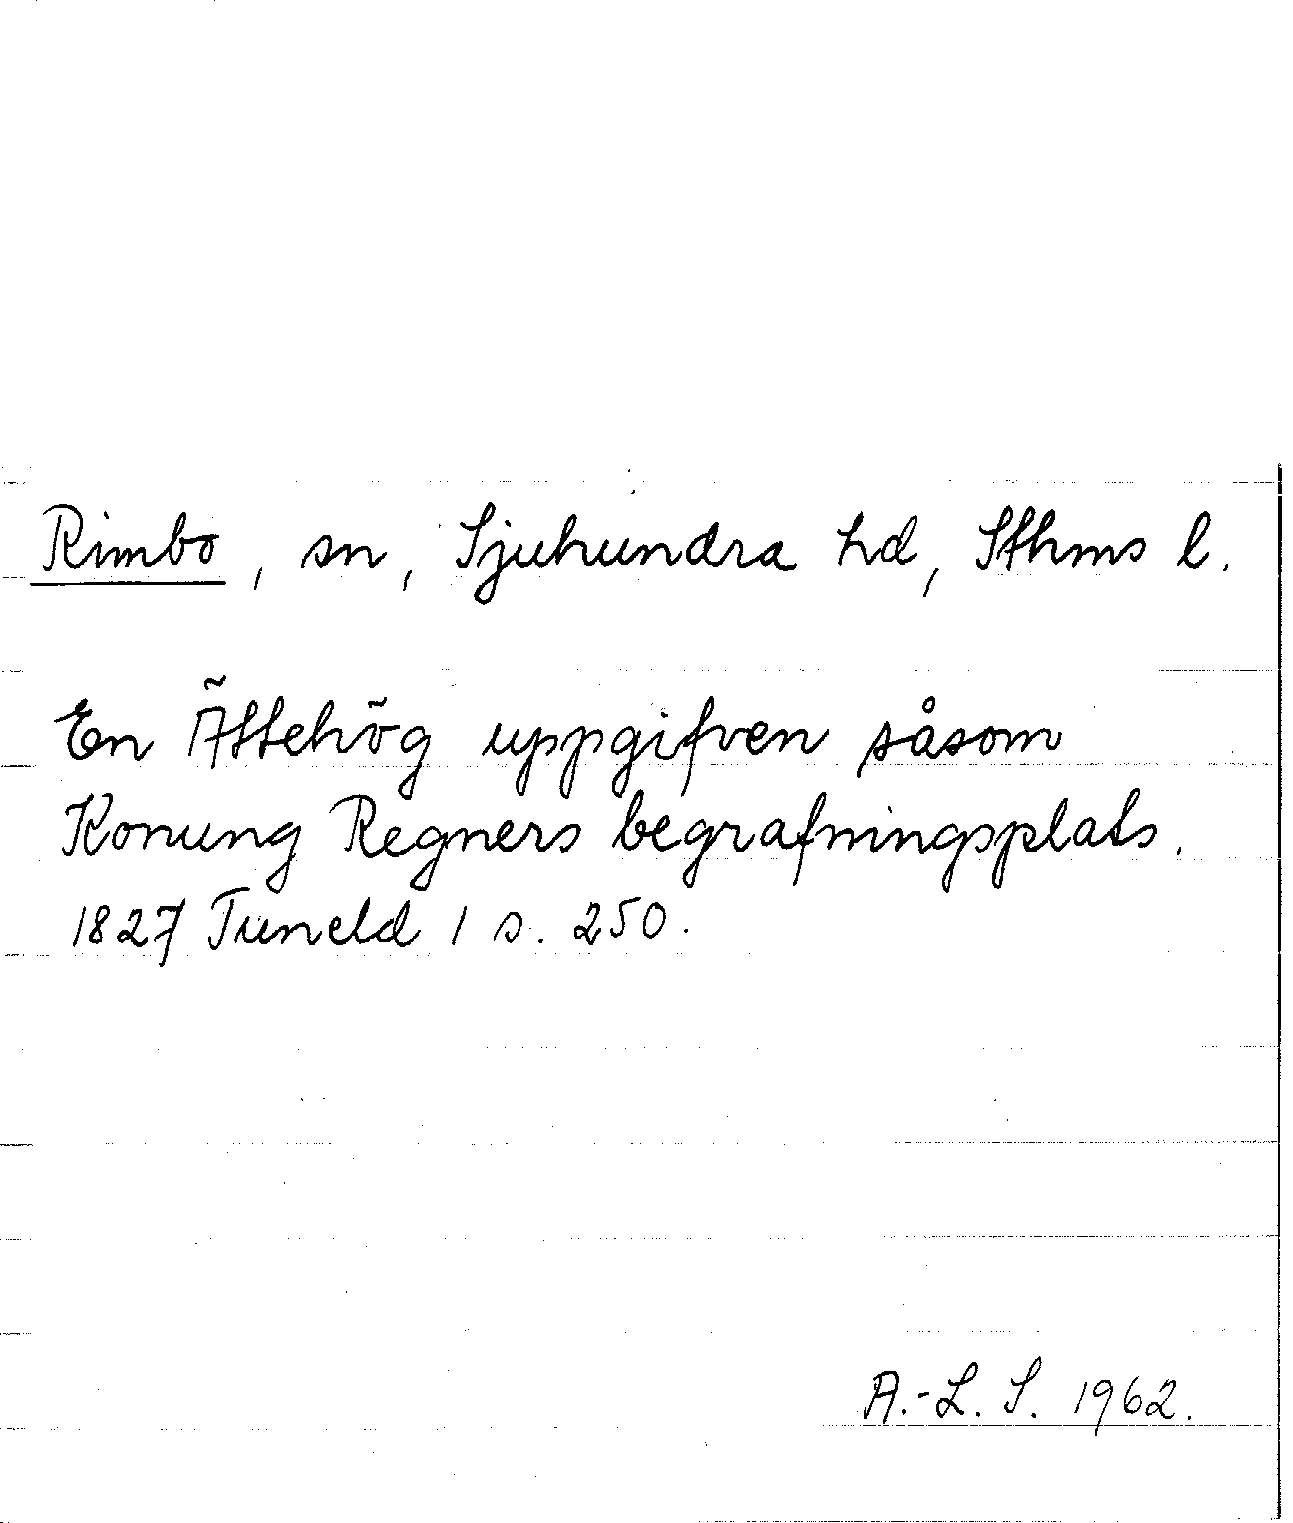 Rimbo, sn, Sjuhundra hd, Sthms l.
En Ättehög uppgifven såsom
Konung Regners begrafningsplats.
1827 Tuneld 1 s. 250.
A.-L. S. 1962.